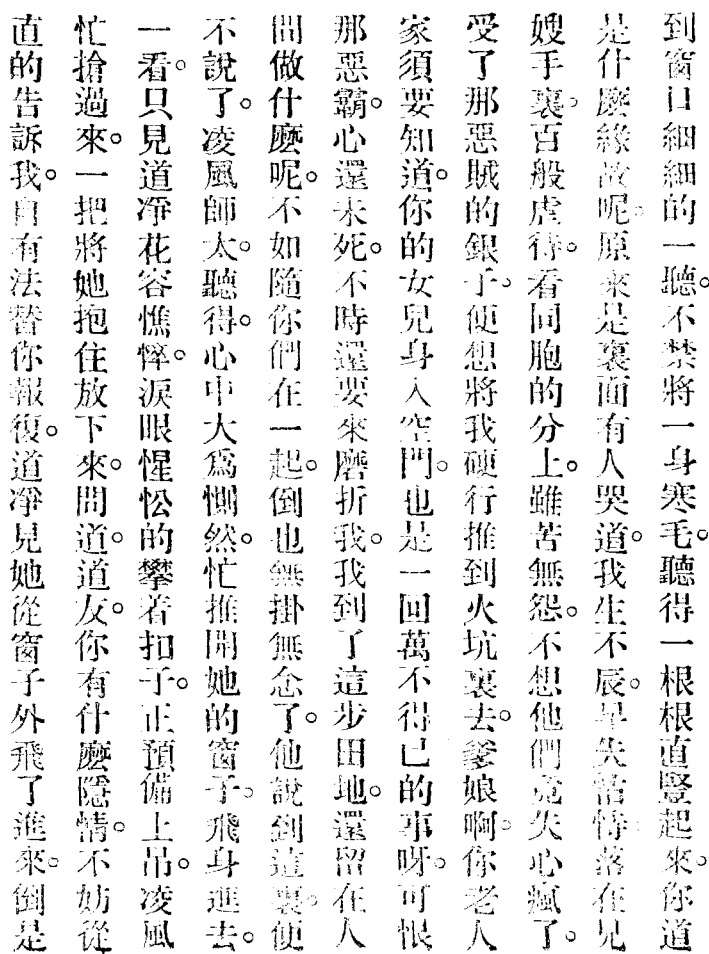 到窗口細細的一聽。不禁將一身寒毛。聽得一根根直豎起來。你道
是什麼緣故呢。原來是裏面有人哭道。我生不辰。早失怙恃。落在兄
嫂手裏。百般虐待。看同胞的分上。雖苦無怨。不想他們竟失心瘋了。
受了那惡賊的銀子。便想將我硬行推到火坑裏去。爹娘啊。你老人
家須要知道。你的女兒身入空門。也是一回萬不得已的事呀。可恨
那惡霸。心還未死。不時還要來磨折我。我到了這步田地。還留在人
間做什麼呢。不如隨你們在一起。倒也無掛無念了。他說到這裏。便
不說了。凌風師太。聽得。心中大爲惻然。忙推開她的窗子。飛身進去。
一看。只見道凈花容憔悴。淚眼惺忪的攀着扣子。正預備上吊。凌風
忙搶過來。一把將她抱住放下來。問道。道友。你有什麼隱情。不妨從
直的告訴我。自有法替你報復。道凈見她從窗子外飛了進來。倒是